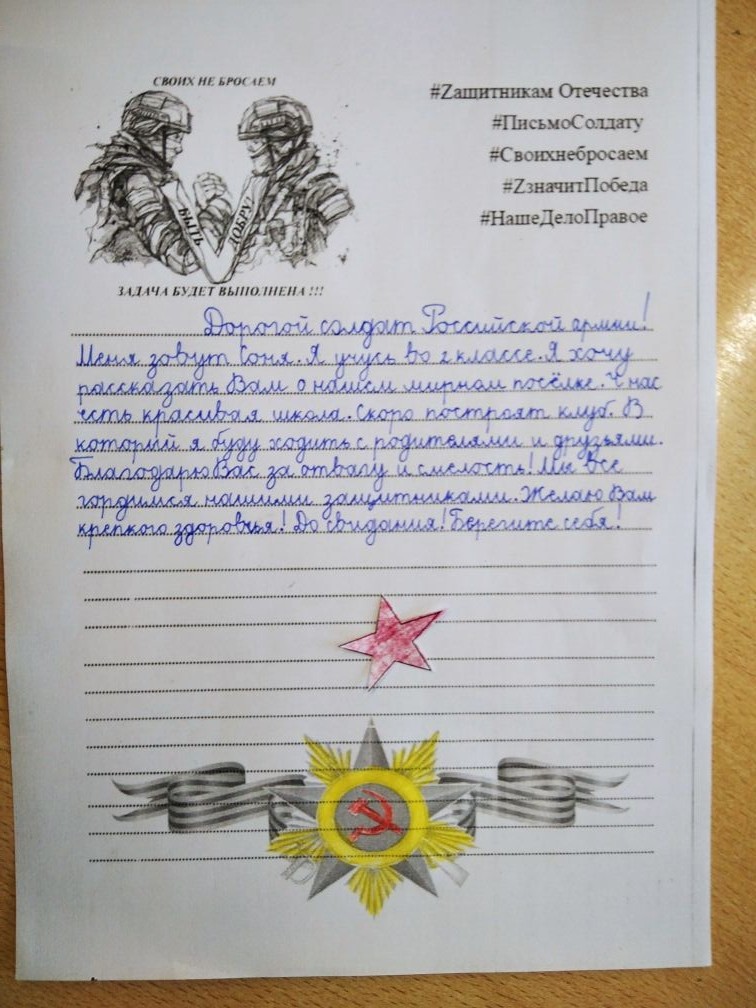 СВОИХ НЕ БРОСАЕМ
#Zащитникам Отечества
#ПисьмоСолдату
#Своихнебросаем
#ZзначитПобеда
#НашеДелоПравое
БЫТЬ
ДОБРУ!
ЗАДАЧА БУДЕТ ВЫПОЛНЕНА !!!
Дорогой солдат Российской армии!
Меня зовут Соня. Я учусь во 2 классе. Я хочу
рассказать Вам о нашем мирном посёлке. У нас
есть красивая школа. Скоро построят клуб. В
который я буду ходить с родителями и друзьями.
Благодарю Вас за отвагу и смелость! Мы все
гордимся нашими защитниками. Желаю Вам
крепкого здоровья! До свидания! Берегите себя!